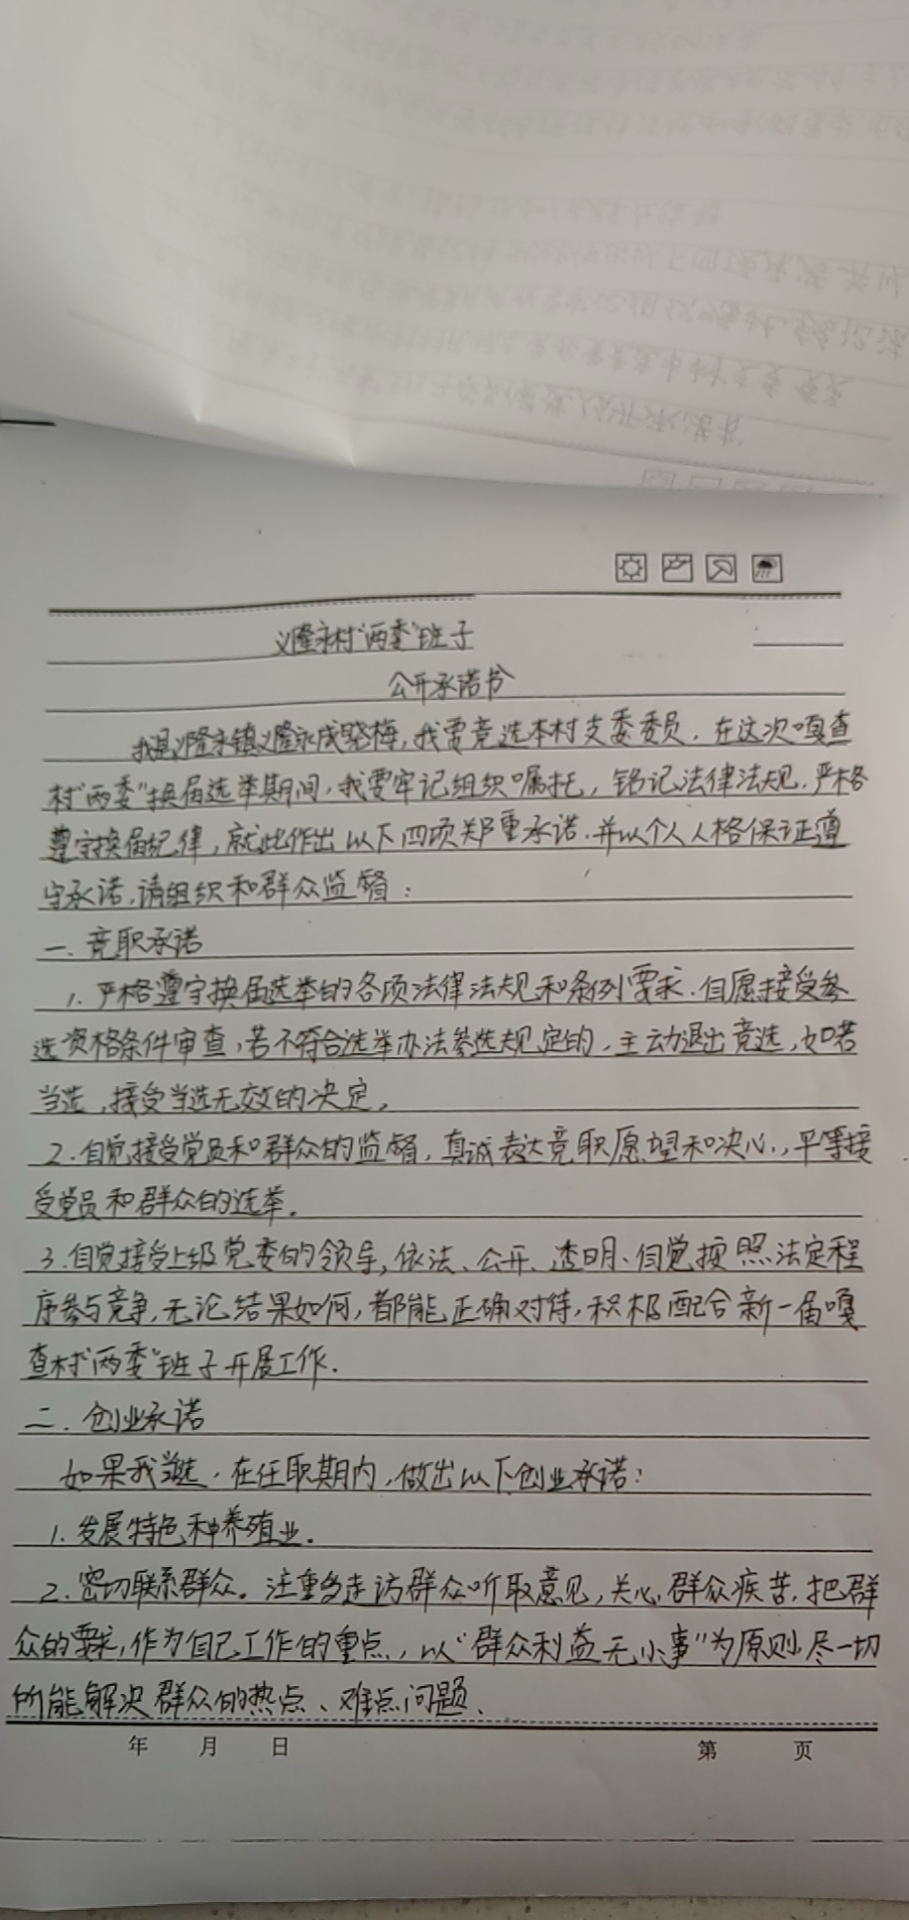 义隆永村“两委”班子
公开承诺书
我是义隆永镇义隆永成晓梅,我要竞选本村支委委员.在这次嘎查
村“两委”换届选举期间,我要牢记组织嘱托,铭记法律法规.严格
遵守换届纪律,就此作出以下四项郑重承诺.并以个人人格保证遵
守承诺,请组织和群众监督:
一.竞职承诺
1.严格遵守换届选举的各项法律法规和条例要求.自愿接受参
选资格条件审查,若不符合选举办法参选规定的,主动退出竞选,如若
当选,接受当选无效的决定,
2.自觉接受党员和群众的监督,真诚表达竞职愿望和决心,平等接
受党员和群众的选举.
3.自觉接受上级党委的领导,依法、公开、透明、自觉按照法定程
序参与竞争,无论结果如何,都能正确对待,积极配合新一届嘎
查村“两委”班子开展工作.
二.创业承诺
如果我当选,在任职期内,做出以下创业承诺:
1.发展特色种养殖业.
2.密切联系群众。注重多走访群众听取意见,关心群众疾苦.把群
众的要求,作为自己工作的重点,以“群众利益无小事”为原则尽一切
所能解决群众的热点、难点问题、
年 月 日 第 页